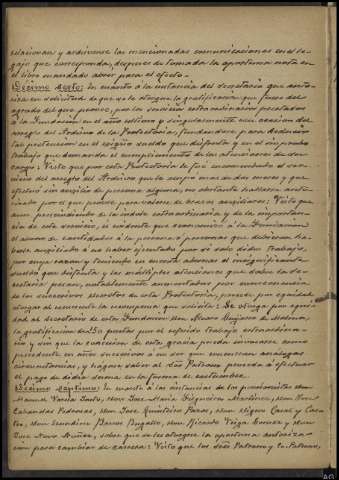 relacionan y archívense las mencionadas comunicaciones en el le-
gajo que corresponda, despues de tomada la oportuna nota en
el libro mandado abrir para el efecto.
Décimo sexto: En cuanto á la instancia del Secretario que
en solicitud de que se le otorgue la gratificación que fuese del
agrado del que provee, por los servicios extraordinarios prestados
á la Fundacion en el año último y singularmente con ocasion del
arreglo del Archivo de la Protectoría, fundandose para deducir
la pretension en el exiguo sueldo que disfruta y en el improbo
trabajo que demanda el cumplimiento de los deberes de su car-
go: Visto que por esta Protectoría le fué encomendado el ser-
vicio del arreglo del Archivo que la ocupó mas de dos meses y que
efectuó sin auxilio de persona alguna, no obstante hallarse auto-
rizado por el que provee para valerse de brazos auxiliares: Visto que
aun prescindiendo de la indole extraordinaria y de la importan-
cia de este servicio, es evidente que economizó á la Fundacion
el abono de cantidades á la persona ó personas que debieran ha-
berle auxiliado á no haber ejecutado por sí solo dicho trabajo,
por cuya razon y teniendo en cuenta además el insignificante
sueldo que disfruta y las múltiples atenciones que sobre la Se-
cretaría pesan, notablemente aumentadas por consecuencia
de los sucesivos acuerdos de esta Protectoría, procede por equidad
otorgar al recurrente la recompensa que solicita: Se otorga por equi-
dad al Secretario de esta Fundacion Don Alvaro
la gratificacion de 250 pesetas por el referido trabajo extraordina-
rio y sin que la concesion de esta gracia pueda invocarse como
precedente en años sucesivos á no ser que concurran analogas
circunstancias, y hagase saber al Sr. Patrono proceda á efectuar
el pago de dicha suma en la forma de costumbre.
Décimo septimo: En cuanto á las instancias de los pensionistas Don
Manuel Varela Santo, Don José María Figueiras Martínez, Don José
Cabandas Pedrosas, Don José Quinteiro Pazos, Don Eligio Casal y Cas
Don Secundino Barros Bugallo, Don Ricardo Veiga Gomez y Don
José Novo Núñez, sobre que se les otorgue la oportuna autoriza-
cion para cambiar de carrera: Visto que los Sres Patrono y Co-Patrono,